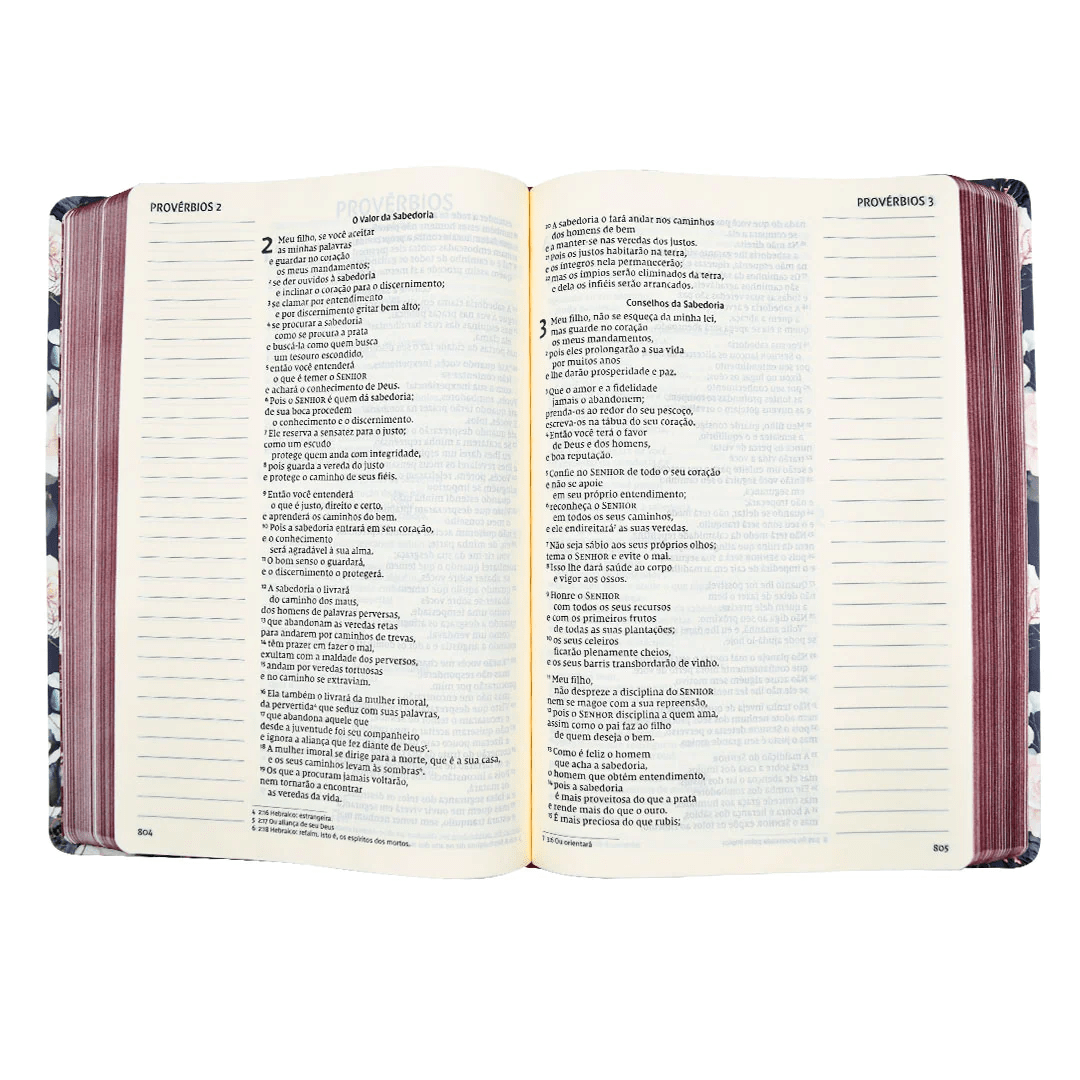 PROVÉRBIOS 2
O Valor da Sabedoria
2 Meu filho, se você aceitar
as minhas palavras
e guardar no coração
os meus mandamentos;
2 se der ouvidos à sabedoria
e inclinar o coração para o discernimento;
3 se clamar por entendimento
e por discernimento gritar bem alto;
4 se procurar a sabedoria
como se procura a prata
e buscá-la como quem busca
um tesouro escondido,
5 então você entenderá
o que é temer o SENHOR
e achará o conhecimento de Deus.
6 Pois o SENHOR é quem dá sabedoria;
de sua boca procedem
o conhecimento e o discernimento.
7 Ele reserva a sensatez para o justo;
como um escudo
protege quem anda com integridade,
8 pois guarda a vereda do justo
e protege o caminho de seus fiéis.
9 Então você entenderá
o que é justo, direito e certo,
e aprenderá os caminhos do bem.
10 Pois a sabedoria entrará em seu coração,
e o conhecimento
será agradável à sua alma.
11 O bom senso o guardará,
e o discernimento o protegerá.
12 A sabedoria o livrará
do caminho dos maus,
dos homens de palavras perversas,
13 que abandonam as veredas retas
para andarem por caminhos de trevas,
14 têm prazer em fazer o mal,
exultam com a maldade dos perversos,
15 andam por veredas tortuosas
e no caminho se extraviam.
16 Ela também o livrará da mulher imoral,
da pervertida4 que seduz com suas palavras,
17 que abandona aquele que
desde a juventude foi seu companheiro
e ignora a aliança que fez diante de Deus5.
18 A mulher imoral se dirige para a morte, que é a sua casa,
e os seus caminhos levam às sombras6.
19 Os que a procuram jamais voltarão,
nem tornarão a encontrar
as veredas da vida.
4 2:16 Hebraico: estrangeira.
5 2:17 Ou aliança de seu Deus
6 2:18 Hebraico: refaim. Isto é, os espíritos dos mortos.
804
PROVÉRBIOS 3
20 A sabedoria o fará andar nos caminhos
dos homens de bem
e a manter-se nas veredas dos justos.
21 Pois os justos habitarão na terra,
e os íntegros nela permanecerão;
22 mas os ímpios serão eliminados da terra,
e dela os infiéis serão arrancados.
Conselhos da Sabedoria
3 Meu filho, não se esqueça da minha lei,
mas guarde no coração
os meus mandamentos,
2 pois eles prolongarão a sua vida
por muitos anos
e lhe darão prosperidade e paz.
3 Que o amor e a fidelidade
jamais o abandonem;
prenda-os ao redor do seu pescoço,
escreva-os na tábua do seu coração.
4 Então você terá o favor
de Deus e dos homens,
e boa reputação.
5 Confie no SENHOR de todo o seu coração
e não se apoie
em seu próprio entendimento;
6 reconheça o SENHOR
em todos os seus caminhos,
e ele endireitará7 as suas veredas.
7 Não seja sábio aos seus próprios olhos;
tema o SENHOR e evite o mal.
8 Isso lhe dará saúde ao corpo
e vigor aos ossos.
9 Honre o SENHOR
com todos os seus recursos
e com os primeiros frutos
de todas as suas plantações;
10 os seus celeiros
ficarão plenamente cheios,
e os seus barris transbordarão de vinho.
11 Meu filho,
não despreze a disciplina do SENHOR
nem se magoe com a sua repreensão,
12 pois o SENHOR disciplina a quem ama,
assim como o pai faz ao filho
de quem deseja o bem.
13 Como é feliz o homem
que acha a sabedoria,
o homem que obtém entendimento,
14 pois a sabedoria
é mais proveitosa do que a prata
e rende mais do que o ouro.
15 É mais preciosa do que rubis;
7 3:6 Ou orientará
805